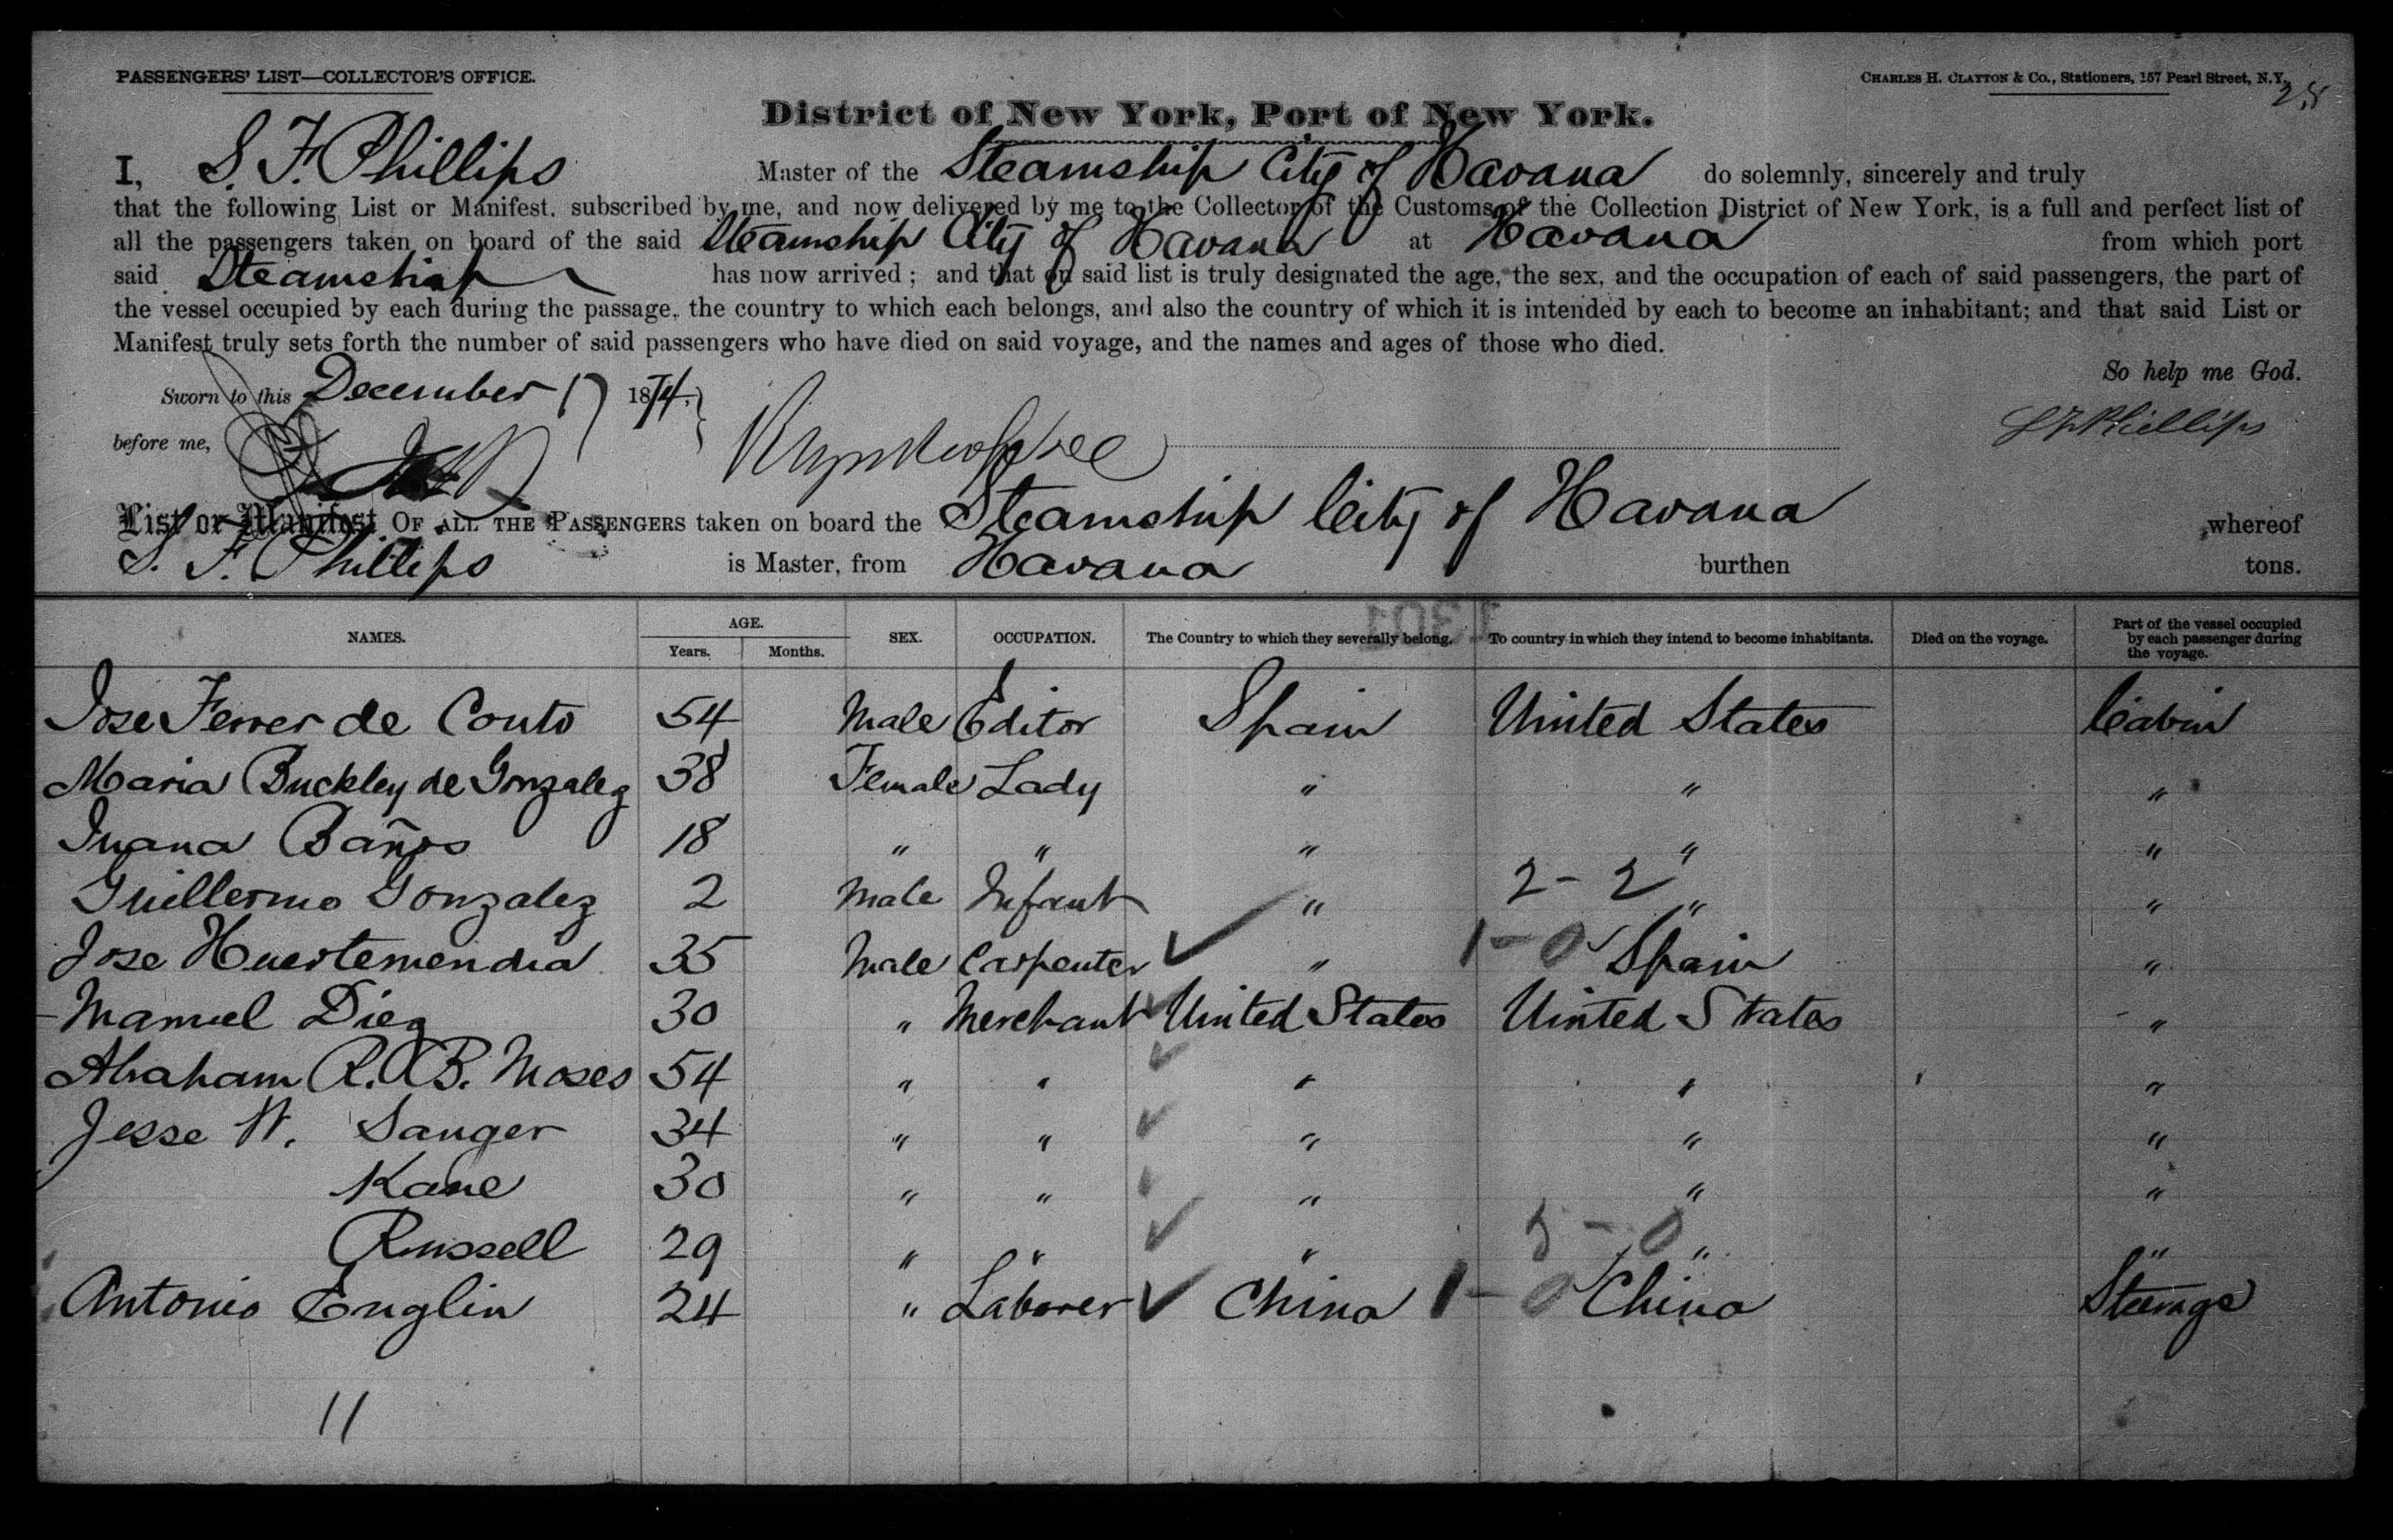 PASSENGERS' LIST—COLLECTOR'S OFFICE.
CHARLES H. CLAYTON & CO., Stationers, 157 Pearl Street, N.Y.
District of New York, Port of New York.
I, S. F. Phillips Master of the Steamship City of Havana do solemnly, sincerely and truly
that the following List or Manifest, subscribed by me, and now delivered by me to the Collector of the Customs of the Collection District of New York, is a full and perfect list of
all the passengers taken on board of the said Steamship City of Havana at Havana from which port
said Steamship has now arrived; and that on said list is truly designated the age, the sex, and the occupation of each of said passengers, the part of
the vessel occupied by each during the passage, the country to which each belongs, and also the country of which it is intended by each to become an inhabitant; and that said List or
Manifest truly sets forth the number of said passengers who have died on said voyage, and the names and ages of those who died.
So help me God.
Sworn to this December 17 1874,
before me, S F Phillips
List or Manifest OF ALL THE PASSENGERS taken on board the Steamship City of Havana whereof
S. F. Phillips is Master, from Havana burthen tons.
1301
NAMES. AGE. Years. Months. SEX. OCCUPATION. The Country to which they severally belong. To country in which they intend to become inhabitants. Died on the voyage. Part of the vessel occupied by each passenger during the voyage.
Jose Ferrer de Couto 54 Male Editor Spain United States Cabin
Maria Buckley de Gonzalez 38 Female Lady " " "
Juana Baños 18 " " " " "
Guillermo Gonzalez 2 Male Infant " 2 - 2 " "
Jose Huertemendia 35 Male Carpenter " 1 - 0 Spain "
Manuel Diez 30 " Merchant United States United States "
Abraham R. B. Moses 54 " " " " "
Jesse W. Sanger 34 " " " " "
Kane 30 " " " " "
Russell 29 " " " 5 - 0 " "
Antonio Englin 24 " Laborer China 1 - 0 China Steerage
11